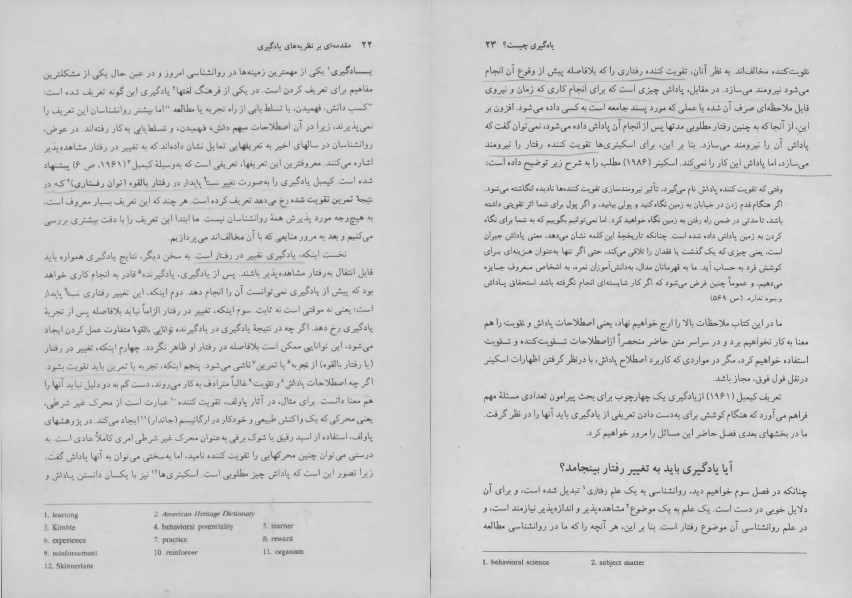 ۲۲ مقدمه‌ای بر نظریه‌های یادگیری
یــادگیری۱ یکی از مهمترین زمینه‌ها در روانشناسی امروز و در عین حال یکی از مشکلترین
مفاهیم برای تعریف کردن است. در یکی از فرهنگ لغتها۲ یادگیری این گونه تعریف شده است:
"کسب دانش، فهمیدن، یا تسلط‌یابی از راه تجربه یا مطالعه." اما بیشتر روانشناسان این تعریف را
نمی‌پذیرند، زیرا در آن اصطلاحات مبهم دانش، فهمیدن، و تسلط‌یابی به‌کار رفته‌اند. در عوض،
روانشناسان در سالهای اخیر به تعریفهایی تمایل نشان داده‌اند که به تغییر در رفتار مشاهده‌پذیر
اشاره می‌کنند. معروفترین این تعریفها، تعریفی است که به‌وسیلهٔ کیمبل۳ (۱۹۶۱، ص ۶) پیشنهاد
شده است. کیمبل یادگیری را به‌صورت تغییر نسبتاً پایدار در رفتار بالقوه (توان رفتاری)۴ که در
نتیجهٔ تمرین تقویت شده رخ می‌دهد تعریف کرده است. هر چند که این تعریف بسیار معروف است،
به هیچ‌وجه مورد پذیرش همهٔ روانشناسان نیست. ما ابتدا این تعریف را با دقت بیشتری بررسی
می‌کنیم و بعد به مرور منابعی که با آن مخالف‌اند می‌پردازیم.
نخست اینکه، یادگیری تغییر در رفتار است. به سخن دیگر، نتایج یادگیری همواره باید
قابل انتقال به‌رفتار مشاهده‌پذیر باشند. پس از یادگیری، یادگیرنده۵ قادر به انجام کاری خواهد
بود که پیش از یادگیری نمی‌توانست آن را انجام دهد. دوم اینکه، این تغییر رفتاری نسبتاً پایدار
است؛ یعنی نه موقتی است نه ثابت. سوم اینکه، تغییر در رفتار الزاماً نباید بلافاصله پس از تجربهٔ
یادگیری رخ دهد. اگر چه در نتیجهٔ یادگیری در یادگیرنده توانایی بالقوهٔ متفاوت عمل کردن ایجاد
می‌شود، این توانایی ممکن است بلافاصله در رفتار او ظاهر نگردد. چهارم اینکه، تغییر در رفتار
(یا رفتار بالقوه) از تجربه۶ یا تمرین۷ ناشی می‌شود. پنجم اینکه، تجربه یا تمرین باید تقویت بشود.
اگر چه اصطلاحات پاداش۸ و تقویت۹ غالباً مترادف به‌کار می‌روند، دست کم به دو دلیل نباید آنها را
هم معنا دانست. برای مثال، در آثار پاولف، تقویت کننده۱۰ عبارت است از محرک غیر شرطی،
یعنی محرکی که یک واکنش طبیعی و خودکار در ارگانیسم (جاندار)۱۱ ایجاد می‌کند. در پژوهشهای
پاولف، استفاده از اسید رقیق یا شوک برقی به‌عنوان محرک غیر شرطی امری کاملاً عادی است. به
درستی می‌توان چنین محرکهایی را تقویت کننده نامید، اما به‌سختی می‌توان به آنها پاداش گفت،
زیرا تصور این است که پاداش چیز مطلوبی است. اسکینری‌ها۱۲ نیز با یکسان دانستن پاداش و
1. learning 2. American Heritage Dictionary
3. Kimble 4. behavioral potentiality 5. learner
6. experience 7. practice 8. reward
9. reinforcement 10. reinforcer 11. organism
12. Skinnerians
یادگیری چیست؟ ۲۳
تقویت‌کننده مخالف‌اند. به نظر آنان، تقویت کننده رفتاری را که بلافاصله پیش از وقوع آن انجام
می‌شود نیرومند می‌سازد. در مقابل، پاداش چیزی است که برای انجام کاری که زمان و نیروی
قابل ملاحظه‌ای صرف آن شده یا عملی که مورد پسند جامعه است به کسی داده می‌شود. افزون بر
این، از آنجا که به چنین رفتار مطلوبی مدتها پس از انجام آن پاداش داده می‌شود، نمی‌توان گفت که
پاداش آن را نیرومند می‌سازد. بنا بر این، برای اسکینری‌ها تقویت کننده رفتار را نیرومند
می‌سازد، اما پاداش این کار را نمی‌کند. اسکینر (۱۹۸۶) مطلب را به شرح زیر توضیح داده است:
وقتی که تقویت کننده پاداش نام می‌گیرد، تأثیر نیرومندسازی تقویت کننده‌ها نادیده انگاشته می‌شود.
اگر هنگام قدم زدن در خیابان به زمین نگاه کنید و پولی بیابید، و اگر پول برای شما اثر تقویتی داشته
باشد، تا مدتی در ضمن راه رفتن به زمین نگاه خواهید کرد. اما نمی‌توانیم بگوییم که به شما برای نگاه
کردن به زمین پاداش داده شده است. چنانکه تاریخچهٔ این کلمه نشان می‌دهد، معنی پاداش جبران
است، یعنی چیزی که یک گذشت یا فقدان را تلافی می‌کند، حتی اگر تنها به‌عنوان هزینه‌ای برای
کوشش فرد به حساب آید. ما به قهرمانان مدال، به‌دانش‌آموزان نمره، به اشخاص معروف جایزه
می‌دهیم، و عموماً چنین فرض می‌شود که اگر کار شایسته‌ای انجام نگرفته باشد استحقاق پاداش
وجود ندارد. (ص ۵۶۹)
ما در این کتاب ملاحظات بالا را ارج خواهیم نهاد، یعنی اصطلاحات پاداش و تقویت را هم
معنا به کار نخواهیم برد و در سراسر متن حاضر منحصراً از اصطلاحات تقویت‌کننده و تقویت
استفاده خواهیم کرد، مگر در مواردی که کاربرد اصطلاح پاداش، با در نظر گرفتن اظهارات اسکینر
در نقل قول فوق، مجاز باشد.
تعریف کیمبل (۱۹۶۱) از یادگیری یک چهارچوب برای بحث پیرامون تعدادی مسئلهٔ مهم
فراهم می‌آورد که هنگام کوشش برای به‌دست دادن تعریفی از یادگیری باید آنها را در نظر گرفت.
ما در بخشهای بعدی فصل حاضر این مسائل را مرور خواهیم کرد.
آیا یادگیری باید به تغییر رفتار بینجامد؟
چنانکه در فصل سوم خواهیم دید، روانشناسی به یک علم رفتاری۱ تبدیل شده است، و برای آن
دلایل خوبی در دست است. یک علم به یک موضوع۲ مشاهده‌پذیر و اندازه‌پذیر نیازمند است، و
در علم روانشناسی آن موضوع رفتار است. بنا بر این، هر آنچه را که ما در روانشناسی مطالعه
1. behavioral science 2. subject matter